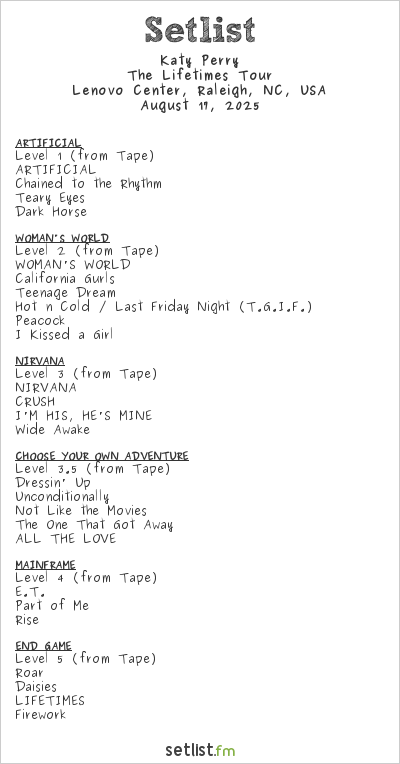 Setlist
Katy Perry
The Lifetimes Tour
Lenovo Center, Raleigh, NC, USA
August 17, 2025
ARTIFICIAL
Level 1 (from Tape)
ARTIFICIAL
Chained to the Rhythm
Teary Eyes
Dark Horse
WOMAN'S WORLD
Level 2 (from Tape)
WOMAN'S WORLD
California Gurls
Teenage Dream
Hot n Cold / Last Friday Night (T.G.I.F.)
Peacock
I Kissed a Girl
NIRVANA
Level 3 (from Tape)
NIRVANA
CRUSH
I'M HIS, HE'S MINE
Wide Awake
CHOOSE YOUR OWN ADVENTURE
Level 3.5 (from Tape)
Dressin' Up
Unconditionally
Not Like the Movies
The One That Got Away
ALL THE LOVE
MAINFRAME
Level 4 (from Tape)
E.T.
Part of Me
Rise
END GAME
Level 5 (from Tape)
Roar
Daisies
LIFETIMES
Firework
setlist.fm